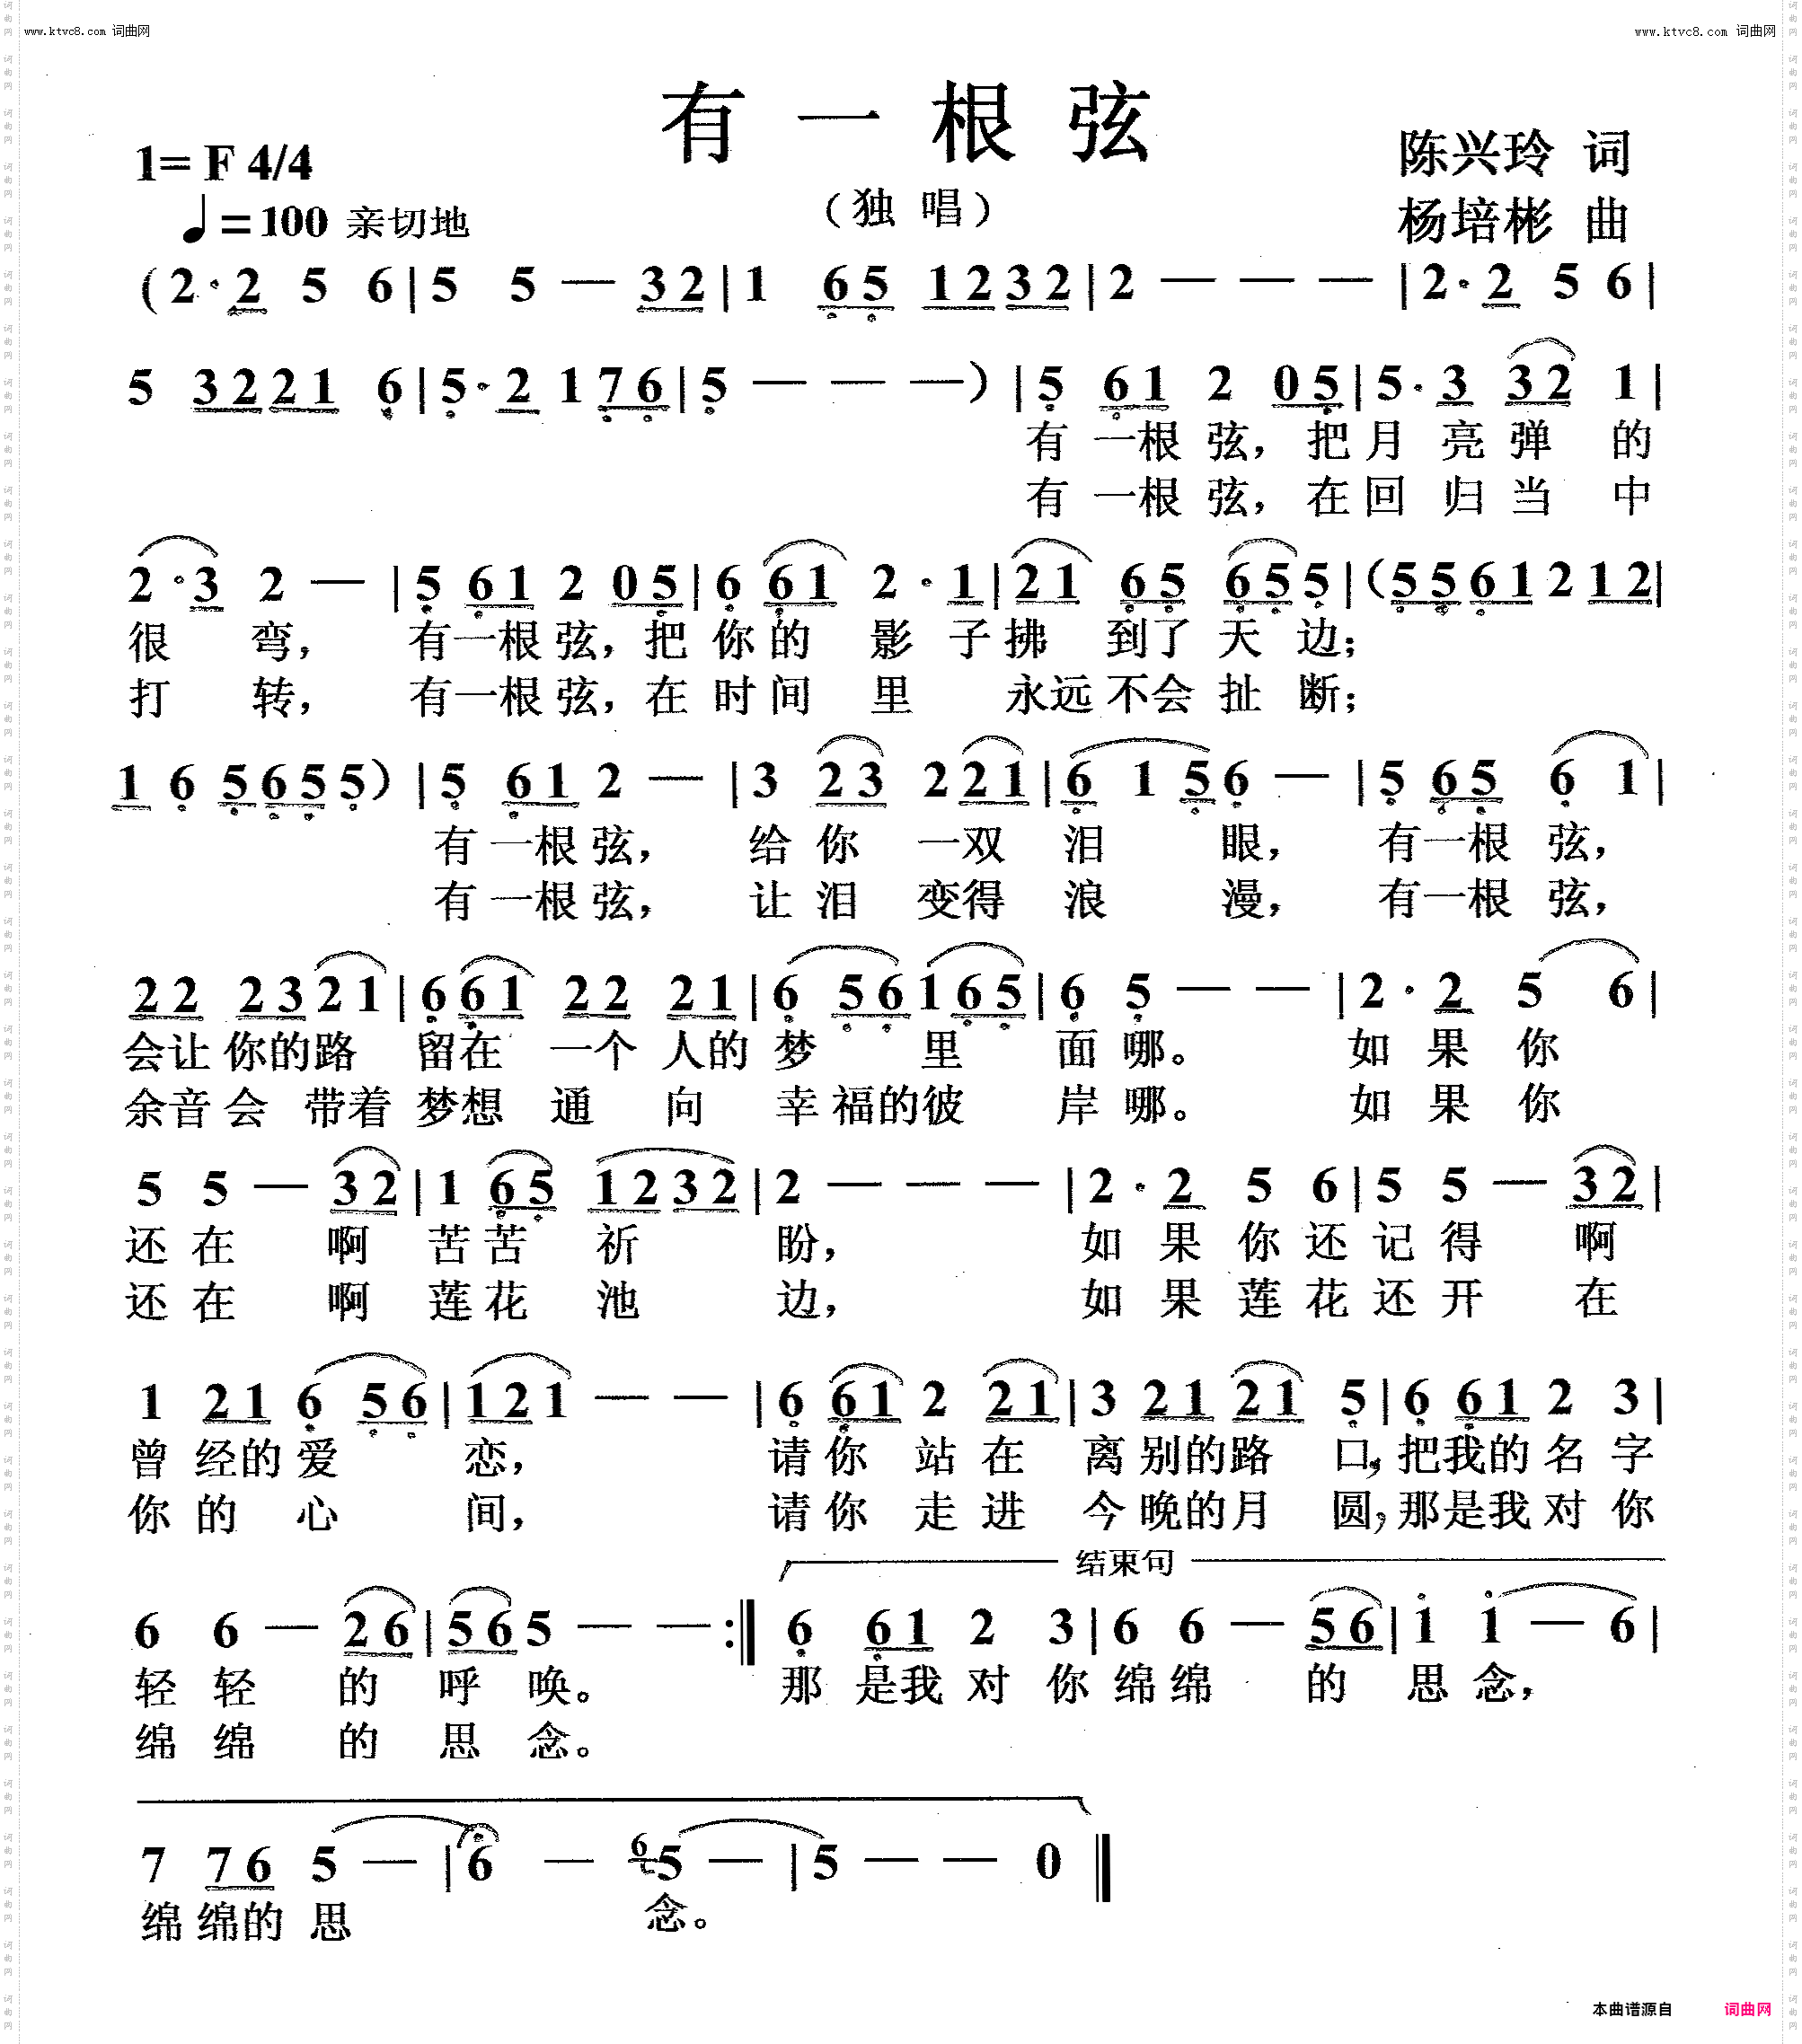 www.ktvc8.com 词曲网
www.ktvc8.com 词曲网
有一根弦
1= F 4/4
陈兴玲 词
（独 唱）
♩=100 亲切地
杨培彬 曲
(2· 2 5 6 | 5 5 — 3 2 | 1 6 5 1 2 3 2 | 2 — — — | 2· 2 5 6 |
5 3 2 2 1 6 | 5· 2 1 7 6 | 5 — — —) | 5 6 1 2 0 5 | 5· 3 3 2 1 |
有 一根 弦，把月 亮 弹 的
有 一根 弦，在回 归 当 中
2· 3 2 — | 5 6 1 2 0 5 | 6 6 1 2· 1 | 2 1 6 5 6 5 5 | (5 5 6 1 2 1 2 |
很 弯， 有一根 弦，把 你 的 影 子 拂 到了 天 边；
打 转， 有一根 弦，在 时 间 里 永远 不会 扯 断；
1 6 5 6 5 5) | 5 6 1 2 — | 3 2 3 2 2 1 | 6 1 5 6 — | 5 6 5 6 1 |
有 一根 弦， 给 你 一双 泪 眼， 有一根 弦，
有 一根 弦， 让 泪 变得 浪 漫， 有一根 弦，
2 2 2 3 2 1 | 6 6 1 2 2 2 1 | 6 5 6 1 6 5 | 6 5 — — | 2· 2 5 6 |
会让 你的路 留在 一个 人的 梦 里 面 哪。 如 果 你
余音 会 带着 梦想 通 向 幸 福的彼 岸 哪。 如 果 你
5 5 — 3 2 | 1 6 5 1 2 3 2 | 2 — — — | 2· 2 5 6 | 5 5 — 3 2 |
还 在 啊 苦 苦 祈 盼， 如 果 你 还 记 得 啊
还 在 啊 莲 花 池 边， 如 果 莲 花 还 开 在
1 2 1 6 5 6 | 1 2 1 — — | 6 6 1 2 2 1 | 3 2 1 2 1 5 | 6 6 1 2 3 |
曾 经的 爱 恋， 请 你 站 在 离 别的路 口，把我的 名 字
你 的 心 间， 请 你 走 进 今 晚的月 圆，那是我 对 你
结束句
6 6 — 2 6 | 5 6 5 — — :‖ 6 6 1 2 3 | 6 6 — 5 6 | 1 1 — 6 |
轻 轻 的 呼 唤。 那 是我 对 你 绵 绵 的 思 念，
绵 绵 的 思 念。
7 7 6 5 — | 6 — 6 5 — | 5 — — 0 ‖
绵 绵的 思 念。
本曲谱源自 词曲网